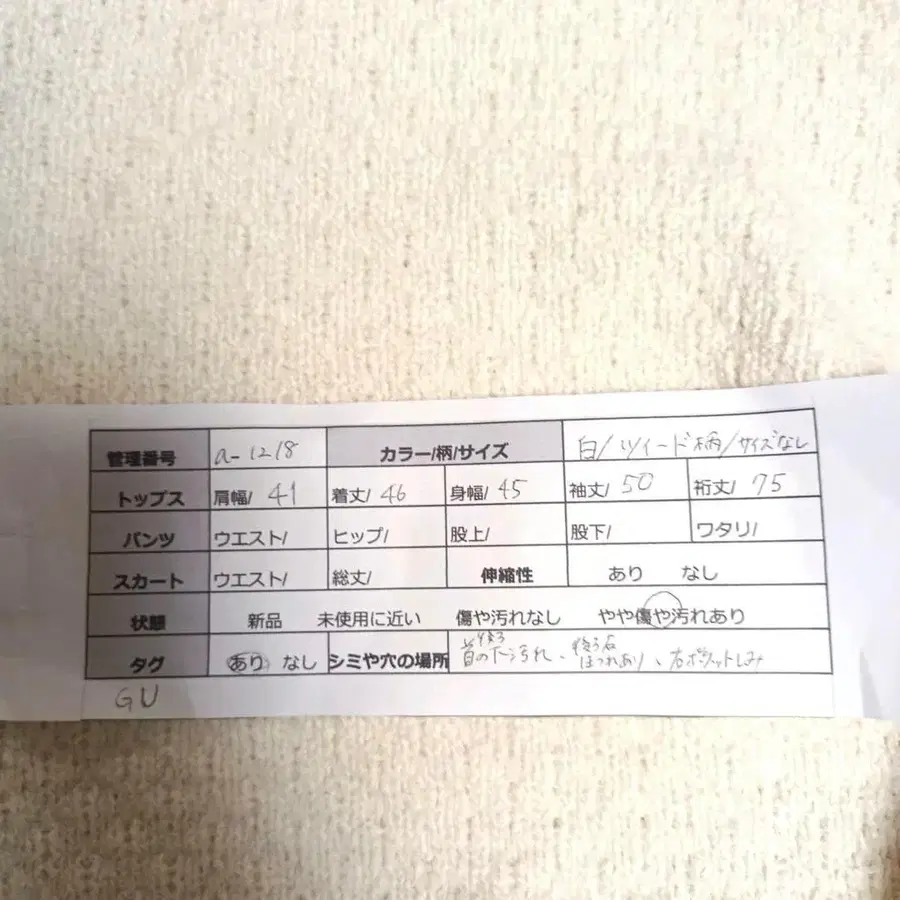 管理番号 a-1218 カラー/柄/サイズ 白/ツイード柄/サイズなし
トップス 肩幅/ 41 着丈/ 46 身幅/ 45 袖丈/ 50 裄丈/ 75
パンツ ウエスト/ ヒップ/ 股上/ 股下/ ワタリ/
スカート ウエスト/ 総丈/ 伸縮性 あり なし
状態 新品 未使用に近い 傷や汚れなし やや傷や汚れあり
後ろ 後ろ右
タグ あり なし シミや穴の場所 首の下汚れ、ほつれあり、右ポケットしみ
GU